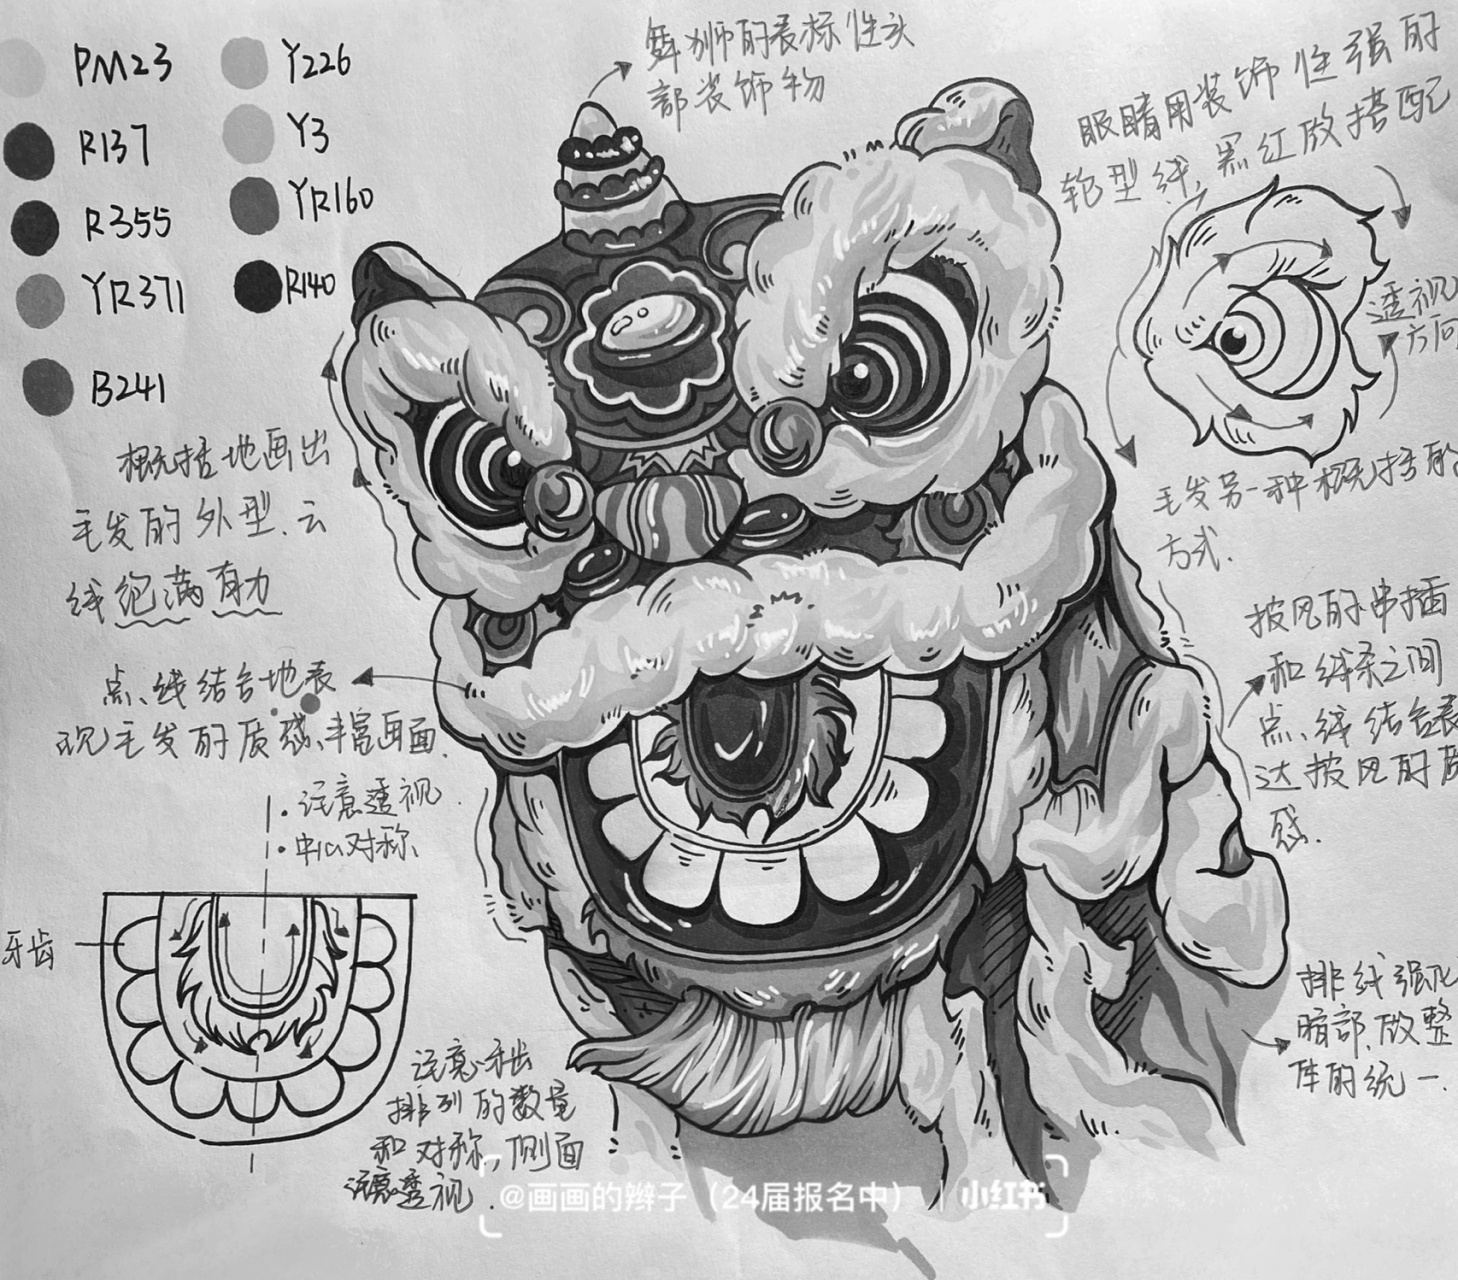 PM23
Y226
R137
Y3
R355
YR160
YR371
R140
B241
舞狮的表标性头
部装饰物
眼睛用装饰性强的
轮型线,黑红做搭配
透视
方向
毛发另一种概括的
方式.
概括地画出
毛发的外型、云
线饱满有力
点、线结合地表
现毛发的质感、丰富画面.
·注意透视.
·中心对称
牙齿
注意牙齿
排列的数量
和对称,侧面
注意透视.
披风的串插
和线条之间
点、线结合表
达披风的质
感.
排线强化
暗部,做整
体的统一.
@画画的辫子(24届报名中)|小红书